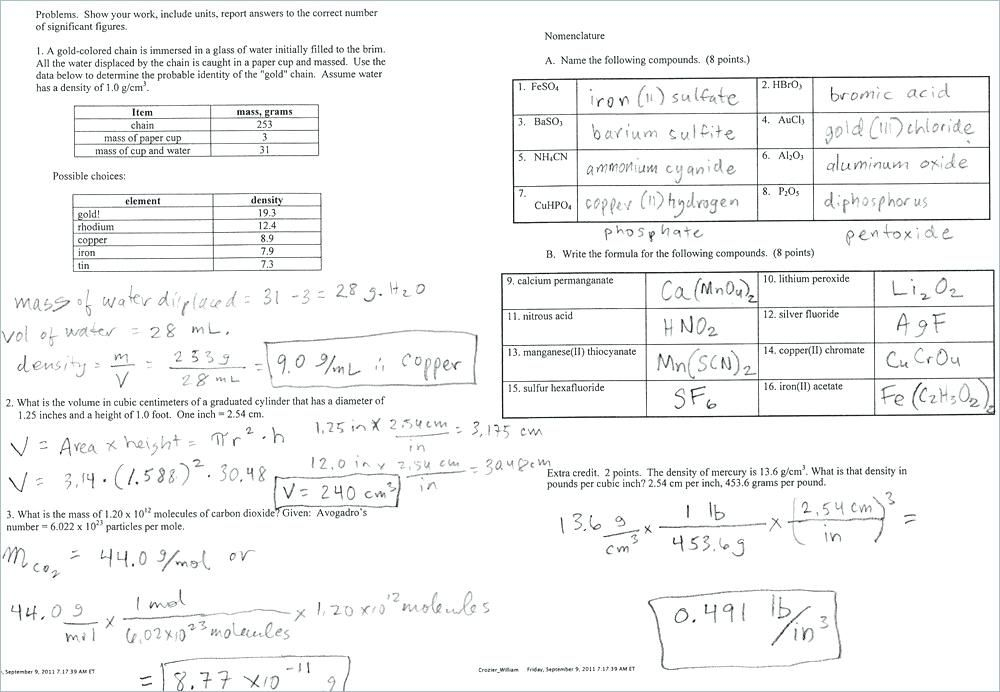 Problems. Show your work, include units, report answers to the correct number
of significant figures.
1. A gold-colored chain is immersed in a glass of water initially filled to the brim.
All the water displaced by the chain is caught in a paper cup and massed. Use the
data below to determine the probable identity of the "gold" chain. Assume water
has a density of 1.0 g/cm³.
Item mass, grams
chain 253
mass of paper cup 3
mass of cup and water 31
Possible choices:
element density
gold! 19.3
rhodium 12.4
copper 8.9
iron 7.9
tin 7.3
mass of water displaced = 31 - 3 = 28 g. H₂O
vol of water = 28 mL.
density = m/V = 253 g / 28 mL = 9.0 g/mL ∴ copper
2. What is the volume in cubic centimeters of a graduated cylinder that has a diameter of
1.25 inches and a height of 1.0 foot. One inch = 2.54 cm.
V = Area x height = πr² · h
1.25 in x 2.54 cm / in = 3.175 cm
V = 3.14 · (1.588)² · 30.48
12.0 in x 2.54 cm / in = 30.48 cm
V = 240 cm³
3. What is the mass of 1.20 x 10¹² molecules of carbon dioxide? Given: Avogadro's
number = 6.022 x 10²³ particles per mole.
m CO₂ = 44.0 g/mol or
44.0 g / mol x 1 mol / 6.02x10²³ molecules x 1.20 x10¹² molecules
= 8.77 x10⁻¹¹ g
, September 9, 2011 7:17:39 AM ET
Nomenclature
A. Name the following compounds. (8 points.)
1. FeSO₄ iron (II) sulfate 2. HBrO₃ bromic acid
3. BaSO₃ barium sulfite 4. AuCl₃ gold (III) chloride
5. NH₄CN ammonium cyanide 6. Al₂O₃ aluminum oxide
7. CuHPO₄ copper (II) hydrogen phosphate 8. P₂O₅ diphosphorus pentoxide
B. Write the formula for the following compounds. (8 points)
9. calcium permanganate Ca(MnO₄)₂ 10. lithium peroxide Li₂O₂
11. nitrous acid HNO₂ 12. silver fluoride AgF
13. manganese(II) thiocyanate Mn(SCN)₂ 14. copper(II) chromate CuCrO₄
15. sulfur hexafluoride SF₆ 16. iron(II) acetate Fe(C₂H₃O₂)₂
Extra credit. 2 points. The density of mercury is 13.6 g/cm³. What is that density in
pounds per cubic inch? 2.54 cm per inch, 453.6 grams per pound.
13.6 g / cm³ x 1 lb / 453.6 g x (2.54 cm / in)³ =
0.491 lb/in³
Crozier_William Friday, September 9, 2011 7:17:39 AM ET